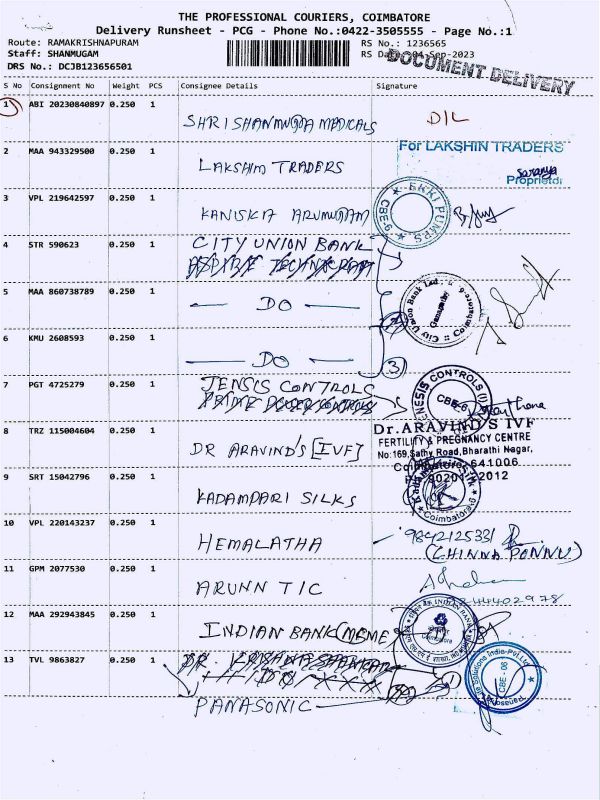 THE PROFESSIONAL COURIERS, COIMBATORE
Delivery Runsheet - PCG - Phone No.:0422-3505555 - Page No.:1
Route: RAMAKRISHNAPURAM
Staff: SHANMUGAM
DRS No.: DCJB123656501
RS No.: 1236565
RS Date: 04-Sep-2023
DOCUMENT DELIVERY
S No Consignment No Weight PCS Consignee Details Signature
1 ABI 20230840897 0.250 1 SHRI SHANMUGA MEDICALS DIL
2 MAA 943329500 0.250 1 LAKSHIM TRADERS
For LAKSHIN TRADERS
Saranya
Proprietor
3 VPL 219642597 0.250 1 KANISKA ARUMUGAM
EKKI PUMPS CBE-6
4 STR 590623 0.250 1 CITY UNION BANK
5 MAA 860738789 0.250 1 — DO —
City Union Bank Ltd. Ganapathy Coimbatore
6 KMU 2608593 0.250 1 — DO — 3
7 PGT 4725279 0.250 1 JENSIS CONTROLS
GENESIS CONTROLS (I) CBE-6
8 TRZ 115004604 0.250 1 DR ARAVIND'S [IVF]
Dr.ARAVIND'S IVF
FERTILITY & PREGNANCY CENTRE
No:169,Sathy Road,Bharathi Nagar,
Coimbatore-641006
9 SRT 15042796 0.250 1 KADAMPARI SILKS
Coimbatore
10 VPL 220143237 0.250 1 HEMALATHA 9842125331
(CHINNA PONNU)
11 GPM 2077530 0.250 1 ARUNN TIC
12 MAA 292943845 0.250 1 INDIAN BANK (MEME)
INDIAN BANK
13 TVL 9863827 0.250 1
PANASONIC
Solutions India Pvt.Ltd CBE - 06